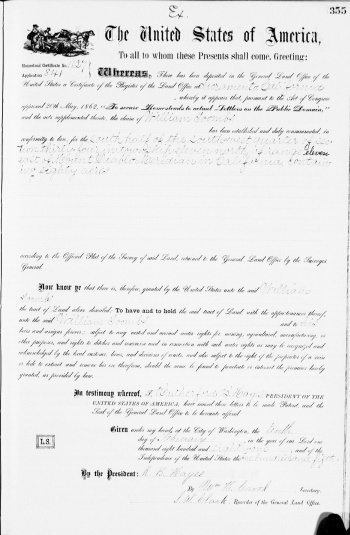 Ex.
355
The United States of America,
To all to whom these Presents shall come, Greeting:
Homestead Certificate No.
Application 841
Whereas, There has been deposited in the General Land Office of the
United States a Certificate of the Register of the Land Office at Sacramento California
, whereby it appears that, pursuant to the Act of Congress
approved 20th May, 1862, "To secure Homesteads to actual Settlers on the Public Domain,"
and the acts supplemental thereto, the claim of William
has been established and duly consummated, in
conformity to law, for the South half of the Southwest quarter of Section
thirty four in township eleven north of range Eleven
east of Mount Diablo Meridian in California containing
eighty acres
according to the Official Plat of the Survey of said Land, returned to the General Land Office by the Surveyor
General.
Now know ye that there is, therefore, granted by the United States unto the said William
the tract of Land above described: To have and to hold the said tract of Land, with the appurtenances thereof,
unto the said William and to his
heirs and assigns forever; subject to any vested and accrued water rights for mining, agricultural, manufacturing, or
other purposes, and rights to ditches and reservoirs used in connection with such water rights as may be recognized and
acknowledged by the local customs, laws, and decisions of courts, and also subject to the right of the proprietor of a vein
or lode to extract and remove his ore therefrom, should the same be found to penetrate or intersect the premises hereby
granted, as provided by law.
In testimony whereof, I, Rutherford B. Hayes, PRESIDENT OF THE
UNITED STATES OF AMERICA, have caused these letters to be made Patent, and the
Seal of the General Land Office to be hereunto affixed.
L.S.
Given under my hand, at the City of Washington, the tenth
day of February, in the year of our Lord one
thousand eight hundred and eighty one, and of the
Independence of the United States the one hundred and fifth
By the President: R. B. Hayes
By Wm. H. Crook, Secretary.
S. W. Clark, Recorder of the General Land Office.